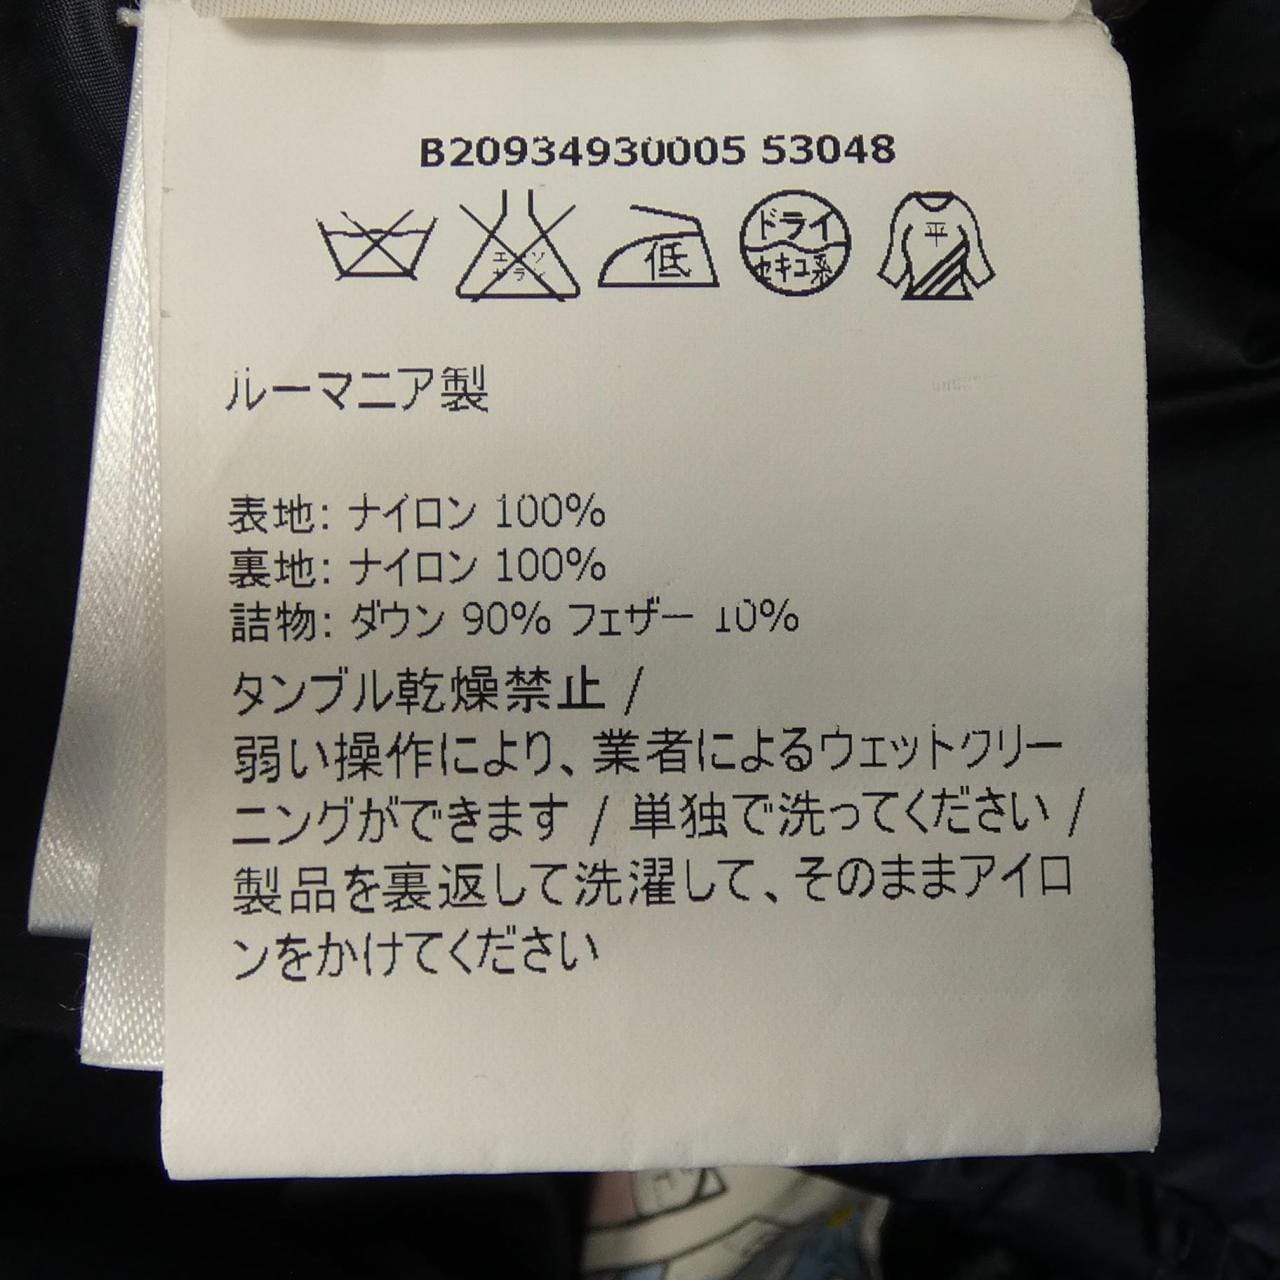 B20934930005 53048
エンソ
サラシ
低
ドライ
セキユ系
平
ルーマニア製
表地: ナイロン 100%
裏地: ナイロン 100%
詰物: ダウン 90% フェザー 10%
タンブル乾燥禁止 /
弱い操作により、業者によるウェットクリー
ニングができます / 単独で洗ってください /
製品を裏返して洗濯して、そのままアイロ
ンをかけてください